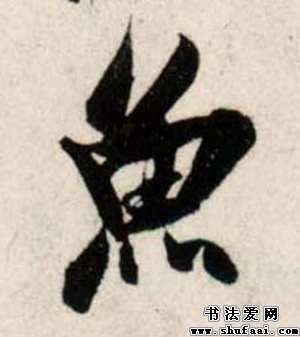 魚
书法爱网
www.shufaai.com